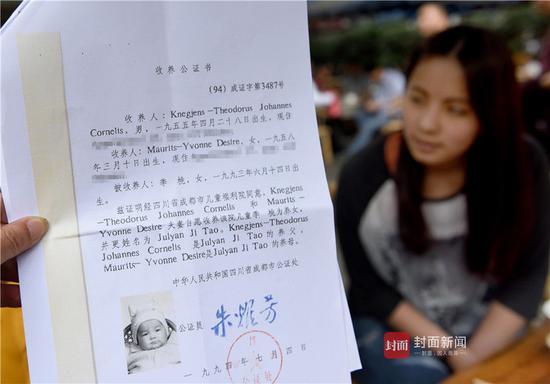 收 养 公 证 书
(94) 成证字第3487号
收 养 人：Knegjens—Theodorus Johannes
Cornelis，男，一九五五年四月二十八日出生，现住
收养人：Maurits—Yvonne Desire，女，一九五八
年三月十日出生，现住
被收养人：李 桃，女，一九九三年六月十四日出
生。
兹证明经四川省成都市儿童福利院同意，Knegjens
—Theodorus Johannes Cornelis 和 Maurits—
Yvonne Desire 夫妻自愿收养该院儿童李 桃为养女，
并更姓名为 Julyan Ji Tao。Knegjens—Theodorus
Johannes Cornelis 是Julyan Ji Tao 的 养 父，
Maurits— Yvonne Desire是Julyan Ji Tao的养母。
中华人民共和国四川省成都市公证处
公证员
一九九四年七月四日
封面
封面新闻